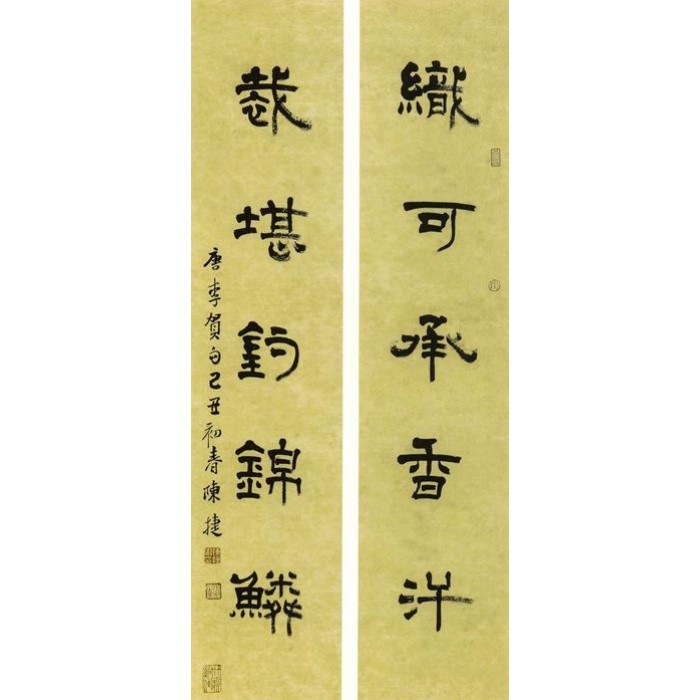 織可承香汗
裁堪釣錦鱗
唐李賀句己丑初春陳捷